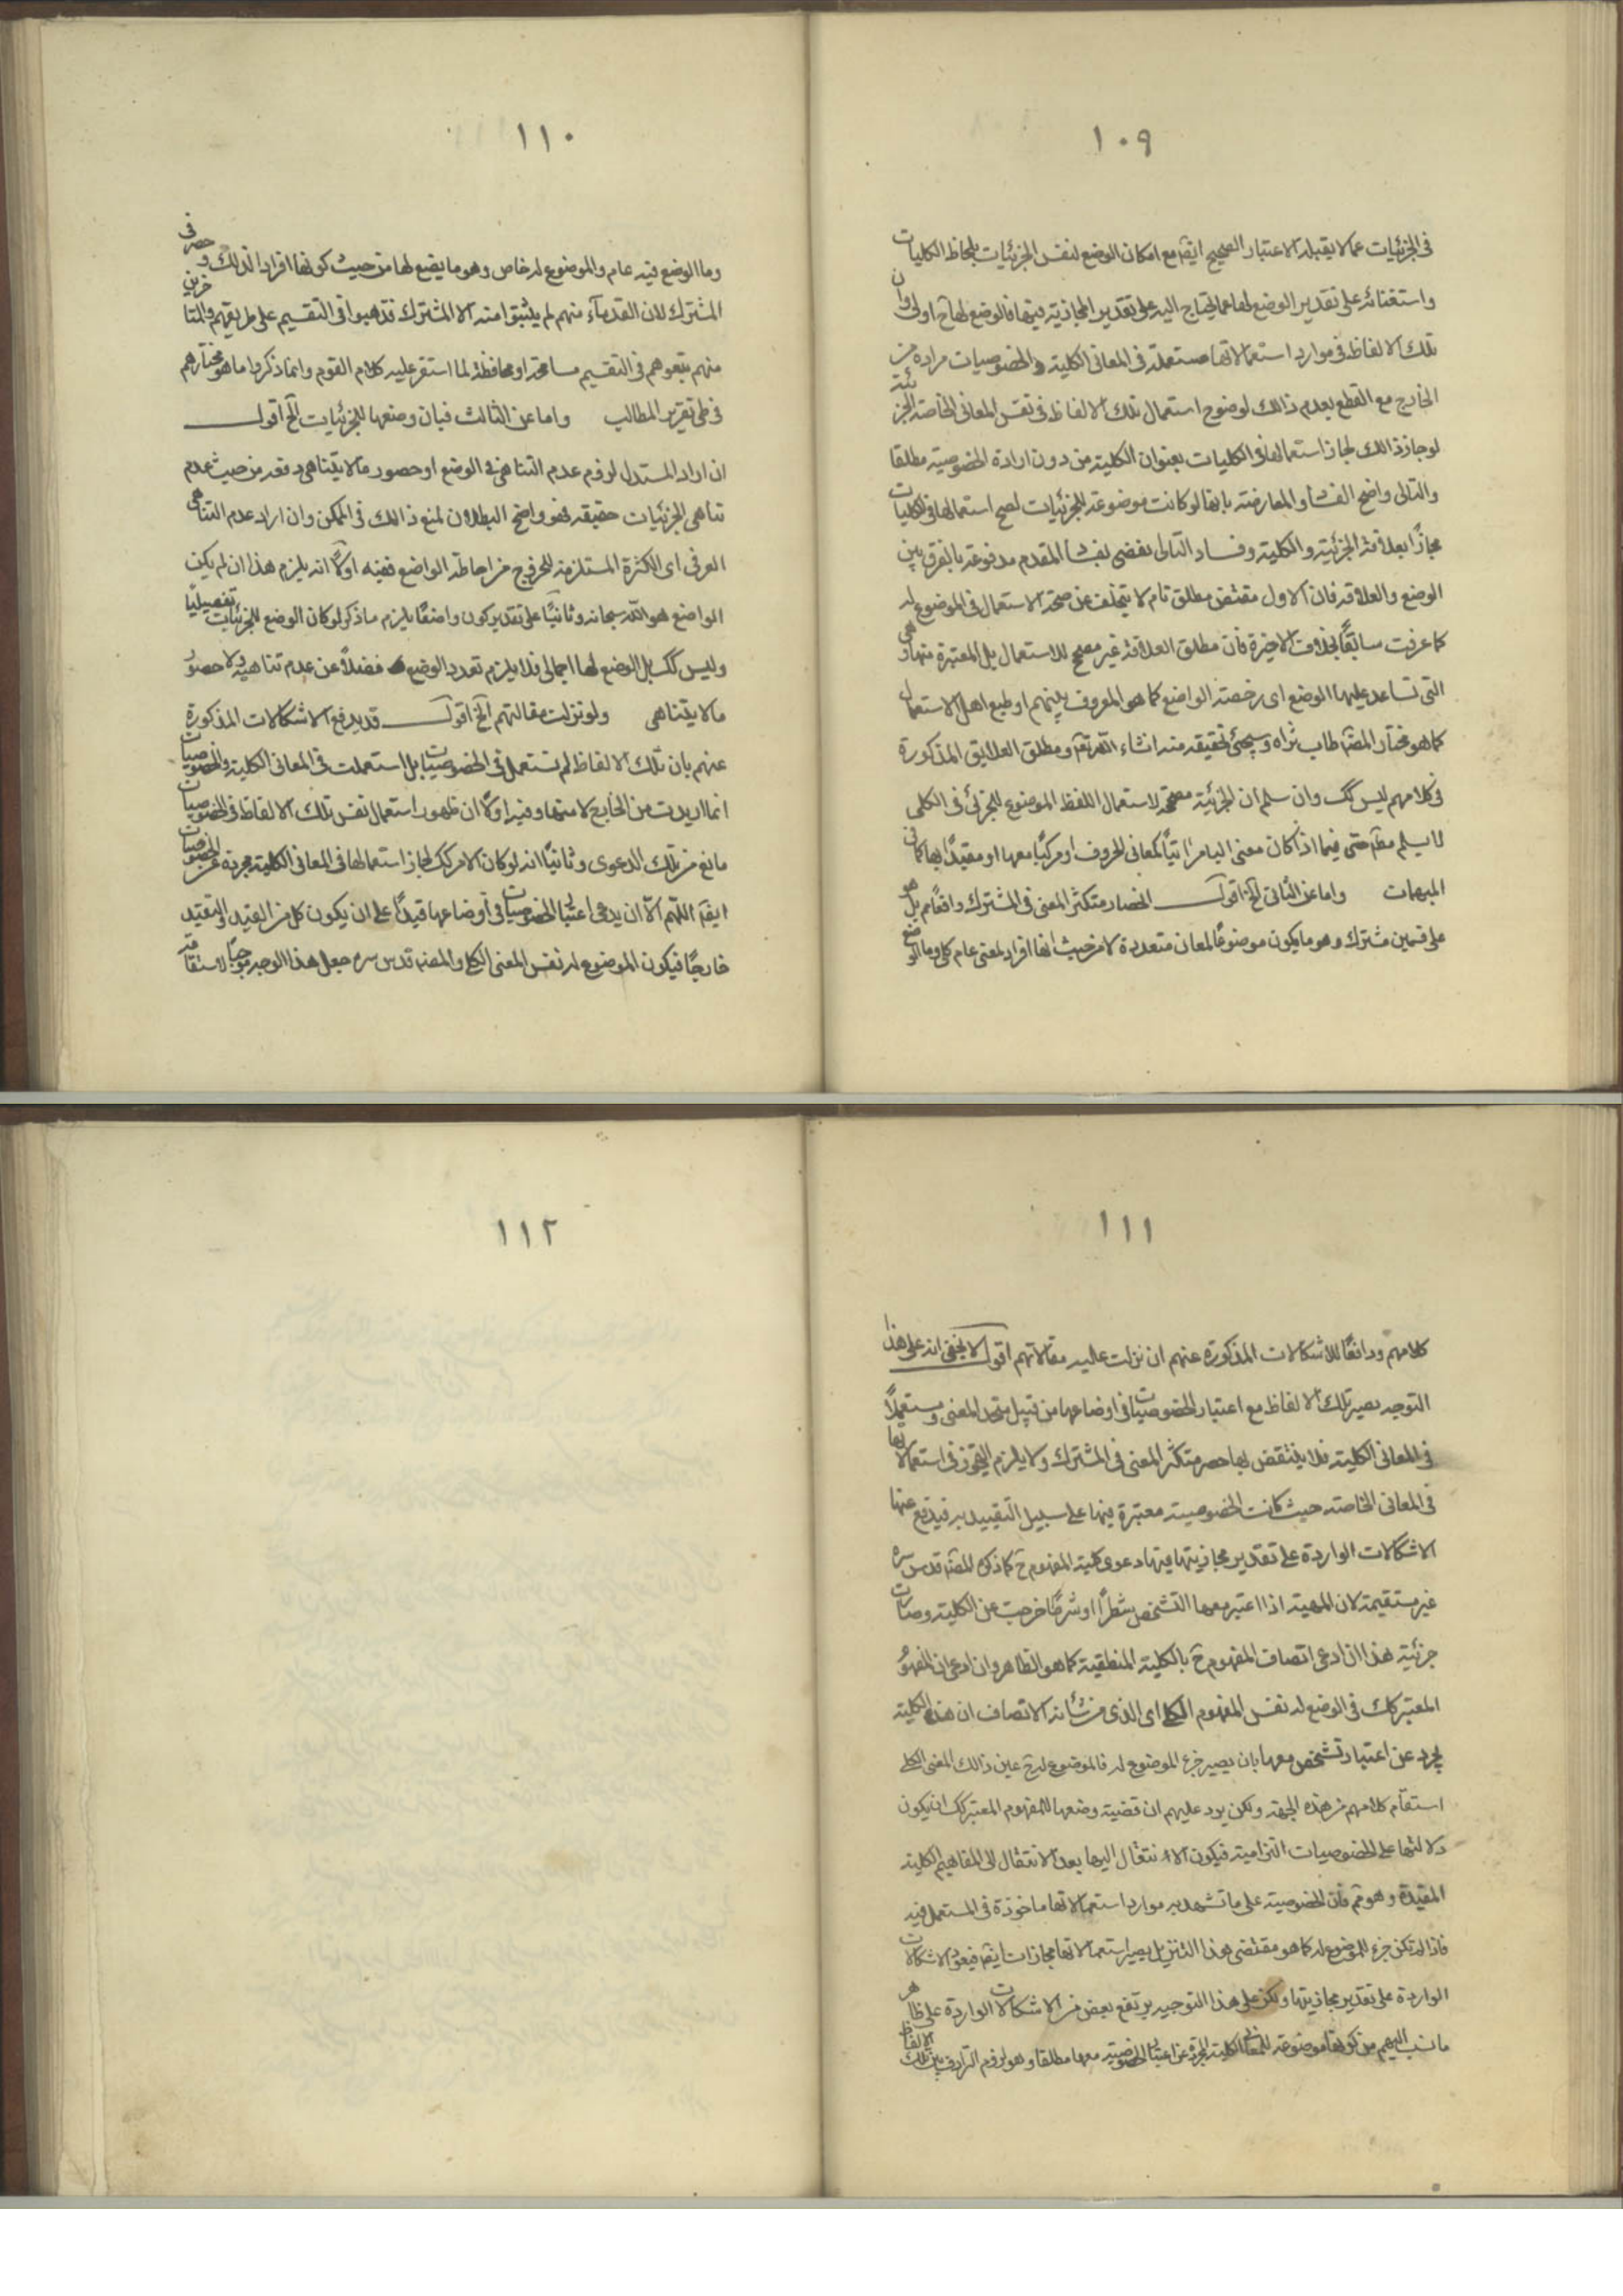 ١٠٩
في الجزئيات عما لا يقبله الاعتبار الصحيح ايضا مع امكان الوضع لنفس الجزئيات بلحاظ الكليات
واستغنائه على تقدير الوضع لها عما يحتاج اليه على تقدير المجازية فيها فالوضع لها ح اولى وان
تلك الالفاظ في موارد استعمالاتها مستعملة في المعاني الكلية والخصوصيات مرادة من
الخارج مع القطع بعدم ذالك لوضوح استعمال تلك الالفاظ في نفس المعاني الخاصة الجزئية
لو جاز ذالك لجاز استعمالها في الكليات بعنوان الكلية من دون ارادة الخصوصية مطلقا
والتالى واضح الفساد والمعارضة بانها لو كانت موضوعة للجزئيات لصح استعمالها في الكليات
مجازًا بعلاقة الجزئية والكلية وفساد التالى يقضى بفساد المقدم مدفوعة بالفرق بين
الوضع والعلاقة فان الاول مقتض مطلق تام لا يتخلف عن صحة الاستعمال في الموضوع له
كما عرفت سابقًا بخلاف الاخيرة فان مطلق العلاقة غير مصحح للاستعمال بل المعتبرة منها وهى
التى تساعد عليها الوضع اى رخصة الواضع كما هو المعروف بينهم او طبع اهل الاستعمال
كما هو مختار المصنف طاب ثراه وسيجئ تحقيقه منه انشاء الله تعالى ومطلق العلايق المذكورة
في كلامهم ليس كك وان سلم ان الجزئية مصححة لاستعمال اللفظ الموضوع للجزئى في الكلى
لا يسلم مطلقا حتى فيما اذا كان معنى اليا مراتيًا كمعاني الحروف او مركبًا معها او مقيدًا بها كما في
المبهمات واما عن الثاني الخ اقول انحصار متكثر المعنى في المشترك واقعًا مم بل هو
على قسمين مشترك وهو ما يكون موضوعًا لمعان متعددة لا من حيث انها افراد لمعنى عام كلى وما الوضع
١١٠
وما الوضع فيه عام والموضوع له خاص وهو ما يضع لها من حيث كونها افرادا لذلك وحصر في
المشترك لان القدماء منهم لم يثبتوا منه الا المشترك فذهبوا في التقسيم على طريقتهم والمتاخرين
منهم تبعوهم في التقسيم مسامحة او محافظة لما استقر عليه كلام القوم وانما ذكروا ما هو مختارهم
في طى تقرير المطالب واما عن الثالث فبان وضعها للجزئيات الخ اقول
ان اراد المستدل لزوم عدم التناهى في الوضع او حصور ما لا يتناهى دفعة من حيث عدم
تناهى الجزئيات حقيقة فهو واضح البطلان لمنع ذالك في الممكن وان اراد عدم التناهى
العرفى اى الكثرة المستلزمة للخروج من احاطة الواضع ففيه اولًا انه يلزم هذا ان لم يكن
الواضع هو الله سبحانه وثانيًا على تقدير كون واضعًا يلزم ما ذكر لو كان الوضع للجزئيات تفصيليًا
وليس كك بل الوضع لها اجمالى فلا يلزم تعدد الوضع فضلًا عن عدم تناهيه ولا حضور
ما لا يتناهى ولو نزلت مقالتهم الخ اقول قد يدفع الاشكالات المذكورة
عنهم بان تلك الالفاظ لم تستعمل في الخصوصيات بل استعملت في المعانى الكلية والخصوصيات
انما اريدت من الخارج لا منها وفيه اولًا ان ظهور استعمال نفس تلك الالفاظ في الخصوصيات
مانع من تلك الدعوى وثانيًا انه لو كان الامر كك لجاز استعمالها في المعانى الكلية مجردة عن الخصوصيات
ايضا اللهم الا ان يدعى اعتبار الخصوصيات في اوضاعها قيدًا على ان يكون كل من القيد والتقييد
خارجًا فيكون الموضوع له نفس المعنى الكلى والمصنف قدس سره جعل هذا الوجه موجبًا لاستقامة
١١١
كلامهم ودافعًا للاشكالات المذكورة عنهم ان نزلت عليه مقالاتهم اقول لا يخفى انه على هذا
التوجيه يصير تلك الالفاظ مع اعتبار الخصوصيات في اوضاعها من قبيل متحد المعنى ومستعملًا
في المعانى الكلية فلا ينتقض بها حصر متكثر المعنى في المشترك ولا يلزم التجوز في استعمالاتها
في المعانى الخاصة حيث كانت الخصوصية معتبرة فيها على سبيل التقييد به فيدفع عنها
الاشكالات الواردة على تقدير مجازيتها فيها دعوى كلية المفهوم ح كما ذكره المصنف قدس سره
غير مستقيمة لان المهية اذا اعتبر معها التشخص شطرًا او شرطًا خرجت عن الكلية وصارت
جزئية هذا ان ادعى اتصاف المفهوم ح بالكلية المنطقية كما هو الظاهر وان ادعى ان المفهوم
المعتبر كك في الوضع له نفس المفهوم الكلى اى الذى من شانه الاتصاف ان هذه الكلية
يجرد عن اعتبار تشخص معها بان يصير جزء الموضوع له فالموضوع له ح عين ذالك المعنى الكلى
استقام كلامهم من هذه الجهة ولكن يرد عليهم ان قضية وضعها للمفهوم المعتبر كك ان يكون
دلالتها على الخصوصيات التزامية فيكون الانتقال اليها بعد الانتقال الى المفاهيم الكلية
المقيدة وهو مم فان الخصوصية على ما تشهد به موارد استعمالاتها ماخوذة في المستعمل فيه
فاذا لم تكن جزء للموضوع له كما هو مقتضى هذا التنزيل يصير استعمالاتها مجازات ايضا فيعود الاشكالات
الواردة على تقدير مجازيتها ولكن على هذا التوجيه يرتفع بعض من الاشكالات الواردة على ظاهر
ما نسب اليهم من كونها موضوعة للمعانى الكلية المجردة عن اعتبار الخصوصية معها مطلقا وهو لزوم الترادف بين تلك الالفاظ
١١٢